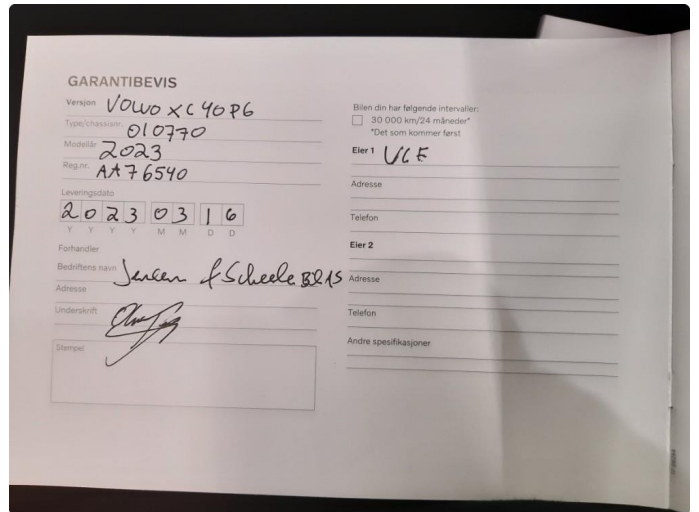 GARANTIBEVIS
Versjon VOLVO XC40 P6
Type/chassisnr. 010770
Modellår 2023
Reg.nr. AA76540
Leveringsdato
2 0 2 3 0 3 1 6
Y Y Y Y M M D D
Forhandler
Bedriftens navn Jensen & Scheele Bil AS
Adresse
Underskrift
Stempel
Bilen din har følgende intervaller:
30 000 km/24 måneder*
*Det som kommer først
Eier 1
Adresse
Telefon
Eier 2
Adresse
Telefon
Andre spesifikasjoner